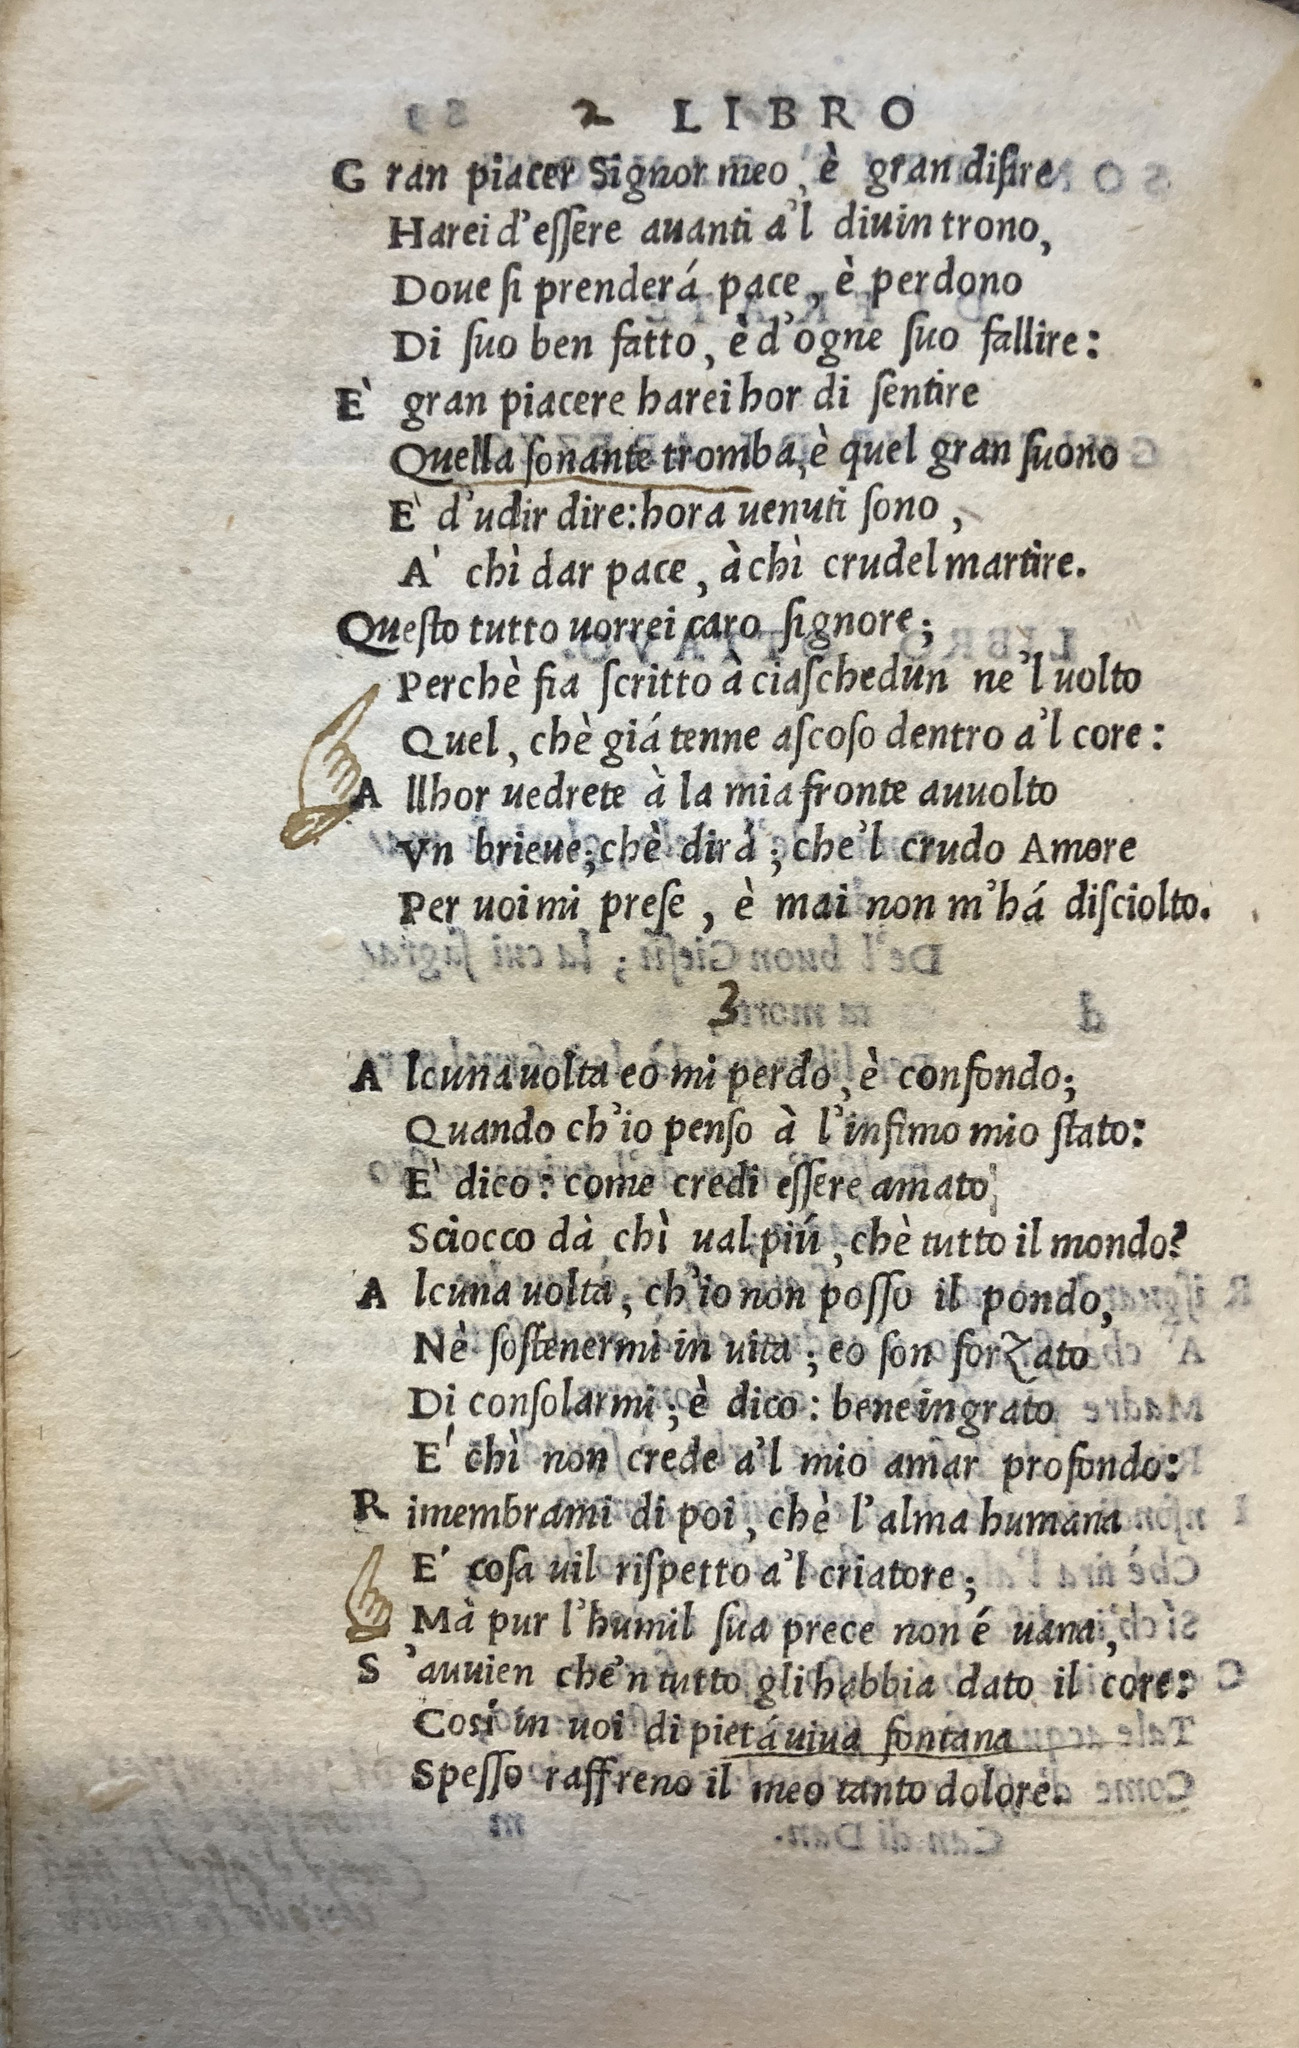 2 LIBRO
Gran piacer Signor meo, è gran disire
Harei d'essere auanti a'l diuin trono,
Doue si prenderá pace, è perdono
Di suo ben fatto, è d'ogne suo fallire:
E' gran piacere harei hor di sentire
Quella sonante tromba, è quel gran suono
E' d'udir dire: hora uenuti sono,
A' chì dar pace, à chì crudel martire.
Questo tutto uorrei caro signore;
Perchè fia scritto à ciaschedun ne'l uolto
Quel, chè giá tenne ascoso dentro a'l core:
Allhor uedrete à la mia fronte auuolto
Vn brieue; chè dirá; che'l crudo Amore
Per uoi mi prese, è mai non m'há disciolto.
3
Alcuna uolta eo mi perdo, è confondo;
Quando ch'io penso à l'infimo mio stato:
E' dico: come credi essere amato
Sciocco dà chì ual piú, chè tutto il mondo?
Alcuna uolta, ch'io non posso il pondo,
Nè sostenermi in uita; eo son forZato
Di consolarmi; è dico: bene ingrato
E' chì non crede a'l mio amar profondo:
Rimembrami di poi, chè l'alma humana
E' cosa uil rispetto a'l criatore;
Mà pur l'humil sua prece non é uana,
S'auuien che'n tutto gli habbia dato il core:
Cosí in uoi di pietá uiua fontana
Spesso raffreno il meo tanto dolore.